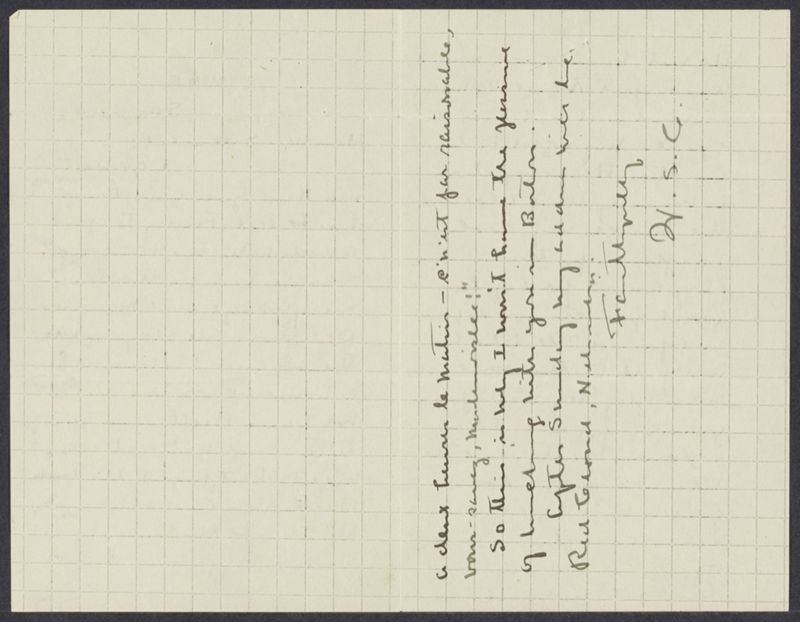 a deux heures le matin - c'n'est pas raisonable,
vous-savez, Mademoiselle!"
So this is why I won't have the pleasure
of lunching with you in Boston.
After Sunday my address will be
Red Cloud, Nebraska.
Faithfully
W. S. C.